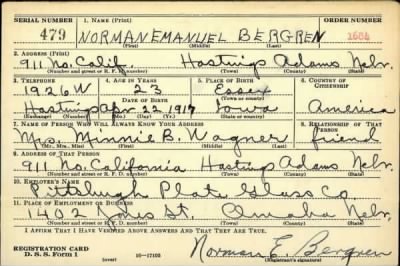 SERIAL NUMBER 1. NAME (Print) ORDER NUMBER
479 NORMAN EMANUEL BERGREN 1684
(First) (Middle) (Last)
2. ADDRESS (Print)
911 No. Calif. Hastings Adams Nebr.
(Number and street or R. F. D. number) (Town) (County) (State)
3. TELEPHONE 4. AGE IN YEARS 5. PLACE OF BIRTH 6. COUNTRY OF CITIZENSHIP
1926W 23 Essex
DATE OF BIRTH (Town or county)
Hastings Apr 22 1917 Iowa America
(Exchange) (Number) (Mo.) (Day) (Yr.) (State or country)
7. NAME OF PERSON WHO WILL ALWAYS KNOW YOUR ADDRESS 8. RELATIONSHIP OF THAT PERSON
Mrs. Minnie B. Wagner friend
(Mr., Mrs., Miss) (First) (Middle) (Last)
9. ADDRESS OF THAT PERSON
911 No. California Hastings Adams Nebr.
(Number and street or R. F. D. number) (Town) (County) (State)
10. EMPLOYER'S NAME
Pittsburgh Plate Glass Co.
11. PLACE OF EMPLOYMENT OR BUSINESS
1402 Jones St. Omaha Nebr.
(Number and street or R. F. D. number) (Town) (County) (State)
I AFFIRM THAT I HAVE VERIFIED ABOVE ANSWERS AND THAT THEY ARE TRUE.
REGISTRATION CARD
D. S. S. Form 1 (over) 16—17105 Norman E. Bergren
(Registrant's signature)